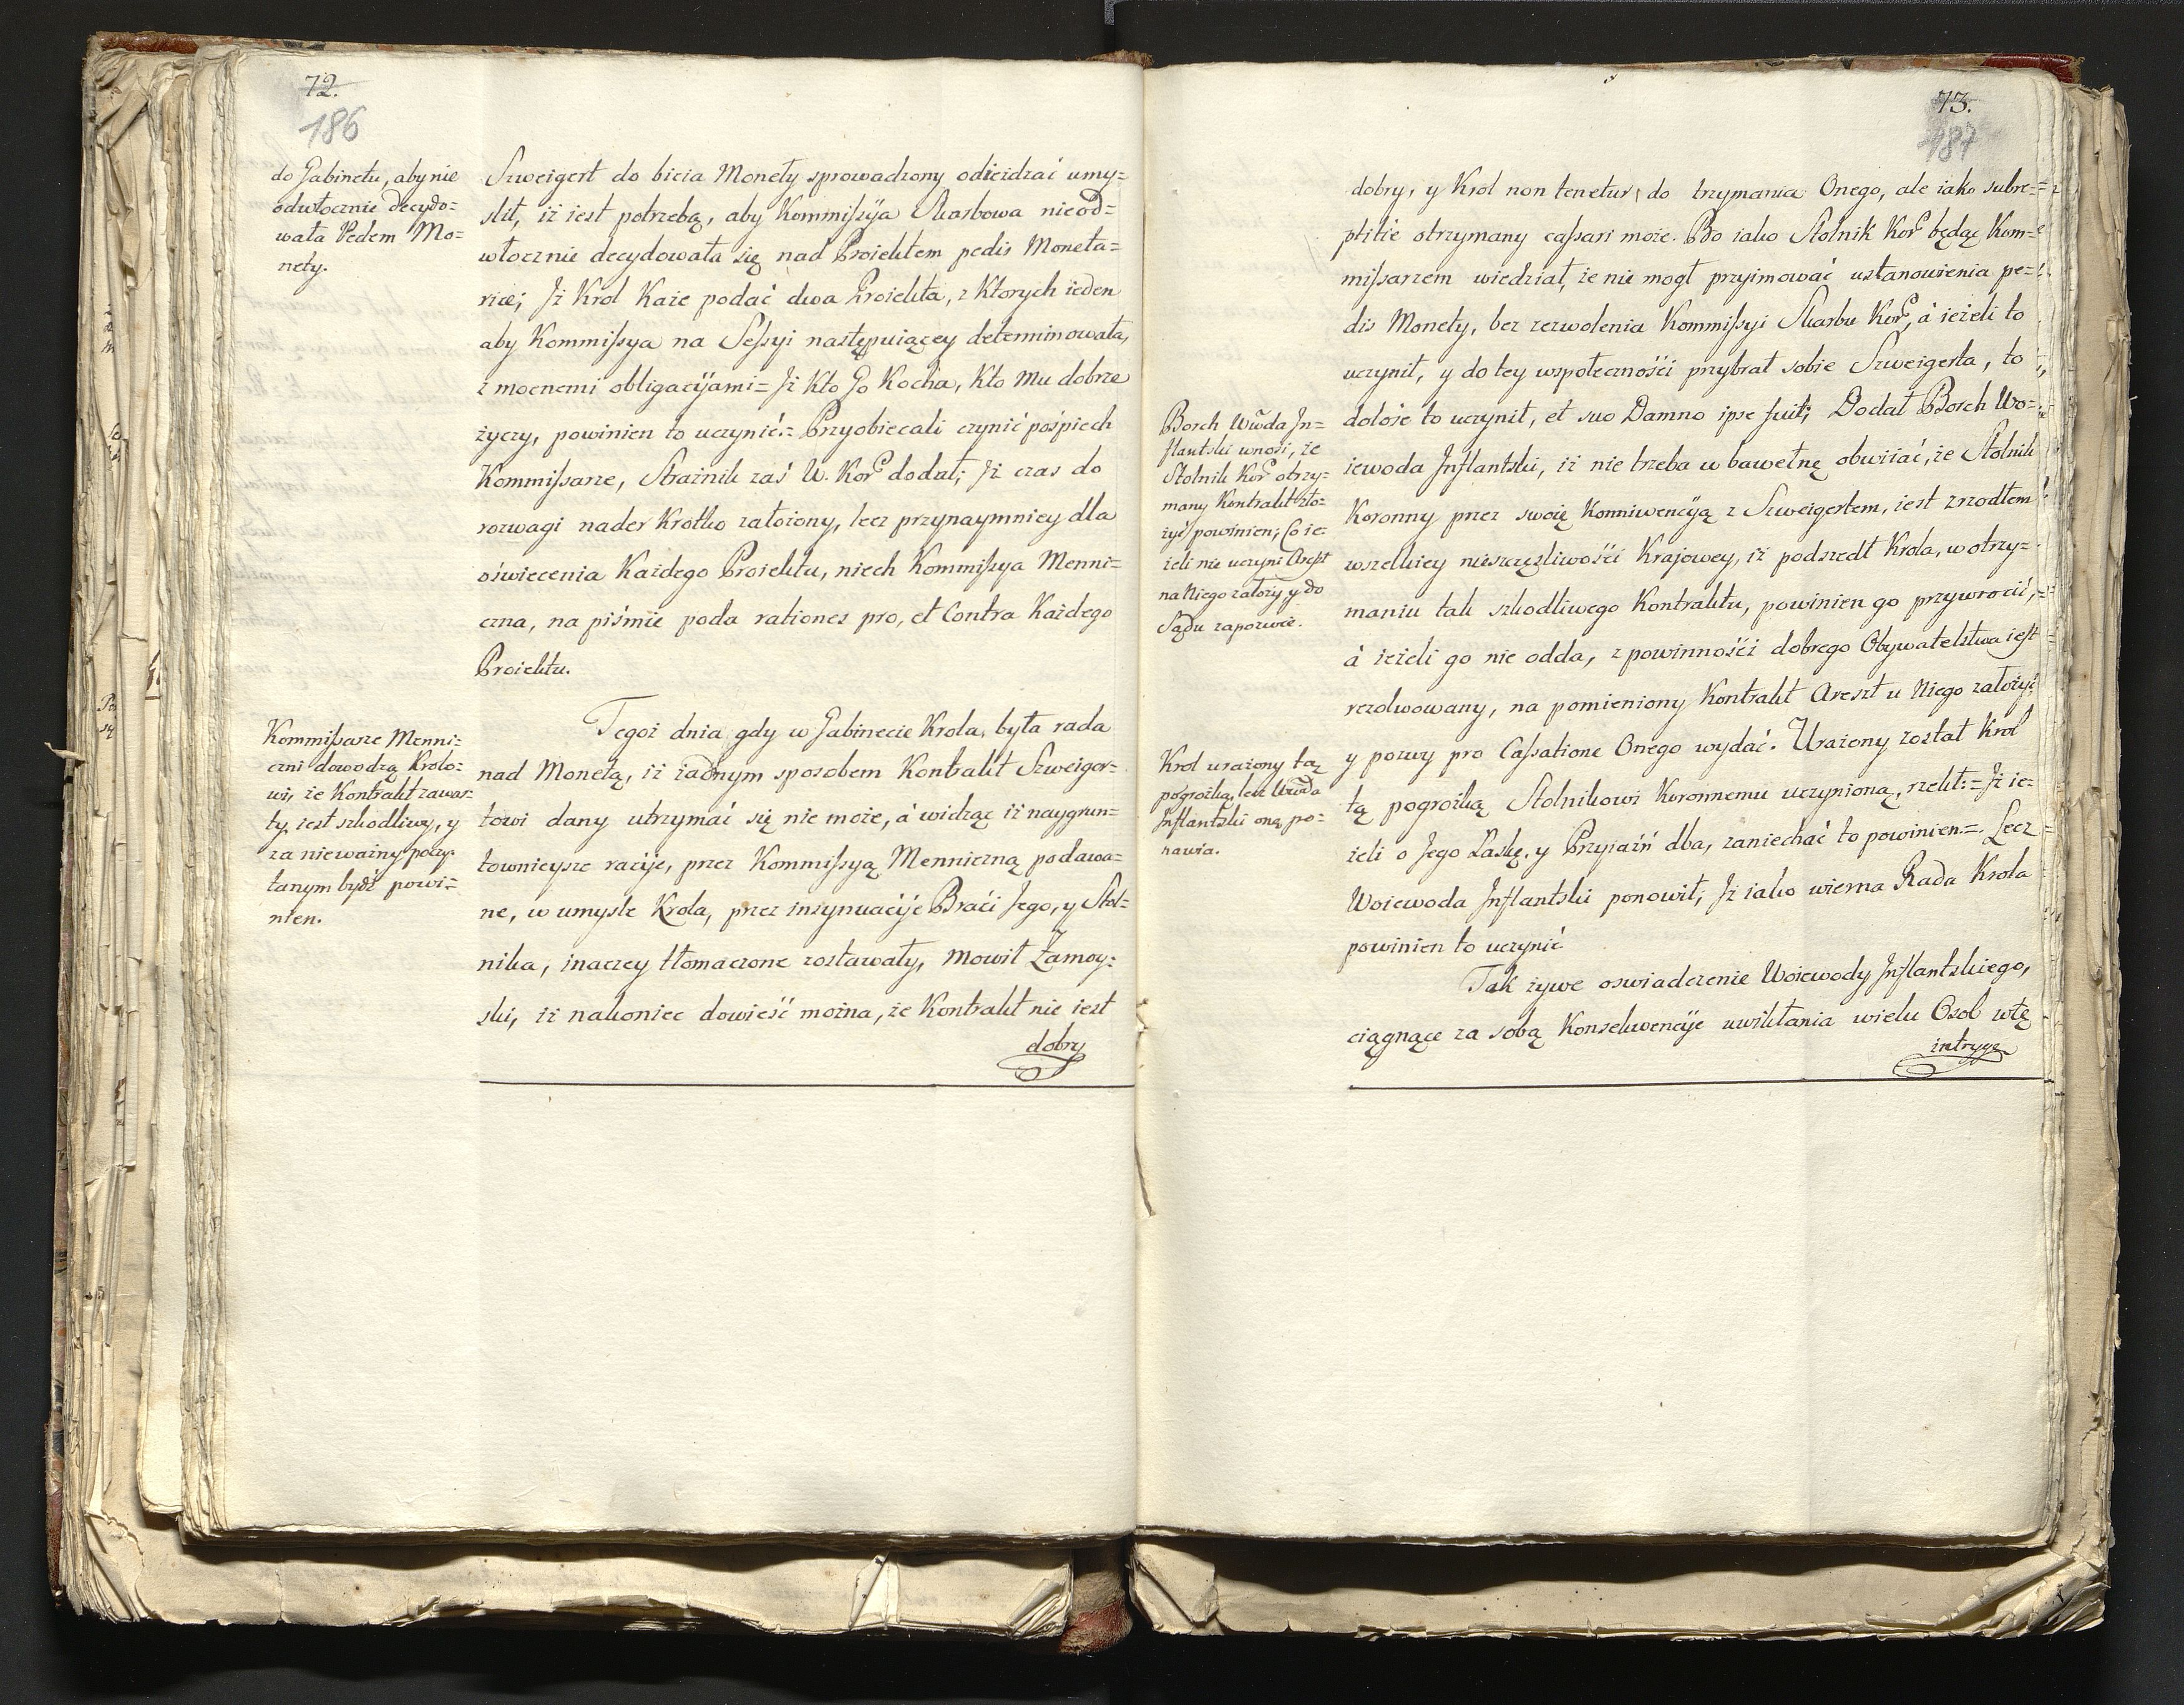 72.
186
do Gabinetu, aby nie
odwłocznie decydo=
wała Pedem Mo=
nety.
Szweigert do bicia Monety sprowadzony odieidzać umy=
slił, iż iest potrzebą, aby Kommissÿa Skarbowa nieod=
włocznie decydowała się nad Proiektem pedis Moneta=
riæ; Jż Krol Każe podać dwa Proiekta, z Ktorych ieden
aby Kommissya na Sessyi następuiącey determinowała,
z mocnemi obligacÿami = Jż Kto Go Kocha, Kto Mu dobrze
życzy, powinien to uczynić.= Przyobiecali czynić pośpiech
Kommissarze, Strażnik zaś W. Kor̃ dodał; Jż czas do
rozwagi nader Krotko założony, lecz przynaymniey dla
oświecenia Każdego Proiektu, niech Kommissya Menni=
czna, na piśmie poda rationes pro, et Contra Każdego
Proiektu.
Kommissarze Menni=
czni dowodzą Krolo=
wi, że Kontrakt zawar=
ty, iest szkodliwy, y
za nieważny poczy=
tanym bydź powi=
nien.
Tegoż dnia, gdy w Gabinecie Krola, była rada
nad Monetą, iż żadnym sposobem Kontrakt Szweiger=
towi dany utrzymać się nie może, á widząc iż naygrun=
townieysze racÿe, przez Kommissyą Menniczną podawa=
ne, w umysle Krola, przez insynuacÿe Braći Jego, y Stol=
nika, inaczey tłomaczone zostawały, mowił Zamoy=
ski, iż nakoniec dowieść można, że Kontrakt nie iest
dobry
73.
187
dobry, y Krol non tenetur, do trzymania Onego, ale iako subre=
ptitie otrzymany cassari może. Bo iako Stolnik Kor̃ będąc Kom=
missarzem wiedział, że nie mogł przyimować ustanowienia pe=
dis Monety, bez zezwolenia Kommissyi Skarbu Kor̃, á ieżeli to
uczynił, y do tey wspołecznośći przybrał sobie Szweigerta, to
dolose to uczynił, et suo Damno ipse fuit; Dodał Borch Wo=
iewoda Jnflantski, iż nie trzeba w bawełnę obwiiać, że Stolnik
Koronny przez swoię Konniwencÿą z Szweigertem, iest zrzodłem
wszelkiey nieszczęśliwośći Krajowey, iż podszedł Krola, w otrzy=
maniu tak szkodliwego Kontraktu, powinien go przywrocić,
á ieżeli go nie odda, z powinnośći dobrego Obywatelstwa iest
rezolwowany, na pomieniony Kontrakt Areszt u Niego założyć,
y pozwy pro Cassatione Onego wydać. Urażony został Krol
tą pogrożką Stolnikowi Koronnemu uczynioną, rzekł: = Jż ie=
żeli o Jego Łaskę, y Przyiaźń dba, zaniechać to powinien =. Lecz
Woiewoda Jnflantski ponowił, Jż iako wierna Rada Krola
powinien to uczynić
Borch Wwda Jn=
flantski wnosi, że
Stolnik Kor̃ otrzy=
many Kontrakt zło=
żyć powinien; Co ie=
żeli nie uczyni Areszt
na Niego założy y do
Sądu zapozwie.
Krol urażony tą
pogrożką, lecz Wwda
Jnflantski onę po=
nawia.
Tak żywe oswiadczenie Woiewody Jnflantskiego,
ciągnące za sobą Konsekwencÿe uwikłania wielu Osob w tę
intrygę